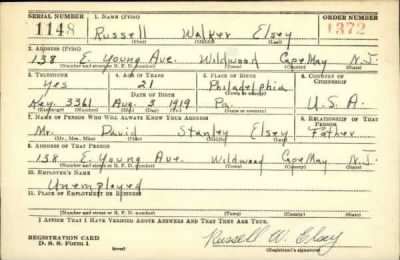 SERIAL NUMBER 1. NAME (Print) ORDER NUMBER
1148 Russell Walker Elsey 1372
(First) (Middle) (Last)
2. ADDRESS (Print)
138 E. Young Ave. Wildwood Cape May N.J.
(Number and street or R. F. D. number) (Town) (County) (State)
3. TELEPHONE 4. AGE IN YEARS 5. PLACE OF BIRTH 6. COUNTRY OF CITIZENSHIP
Yes 21 Philadelphia
DATE OF BIRTH (Town or county)
Key. 3361 Aug. 3 1919 Pa. U.S.A.
(Exchange) (Number) (Mo.) (Day) (Yr.) (State or country)
7. NAME OF PERSON WHO WILL ALWAYS KNOW YOUR ADDRESS 8. RELATIONSHIP OF THAT PERSON
Mr. David Stanley Elsey Father
(Mr., Mrs., Miss) (First) (Middle) (Last)
9. ADDRESS OF THAT PERSON
138 E. Young Ave. Wildwood Cape May N.J.
(Number and street or R. F. D. number) (Town) (County) (State)
10. EMPLOYER'S NAME
Unemployed
11. PLACE OF EMPLOYMENT OR BUSINESS
(Number and street or R. F. D. number) (Town) (County) (State)
I AFFIRM THAT I HAVE VERIFIED ABOVE ANSWERS AND THAT THEY ARE TRUE.
REGISTRATION CARD
D. S. S. Form 1 (over) Russell W. Elsey
(Registrant's signature)